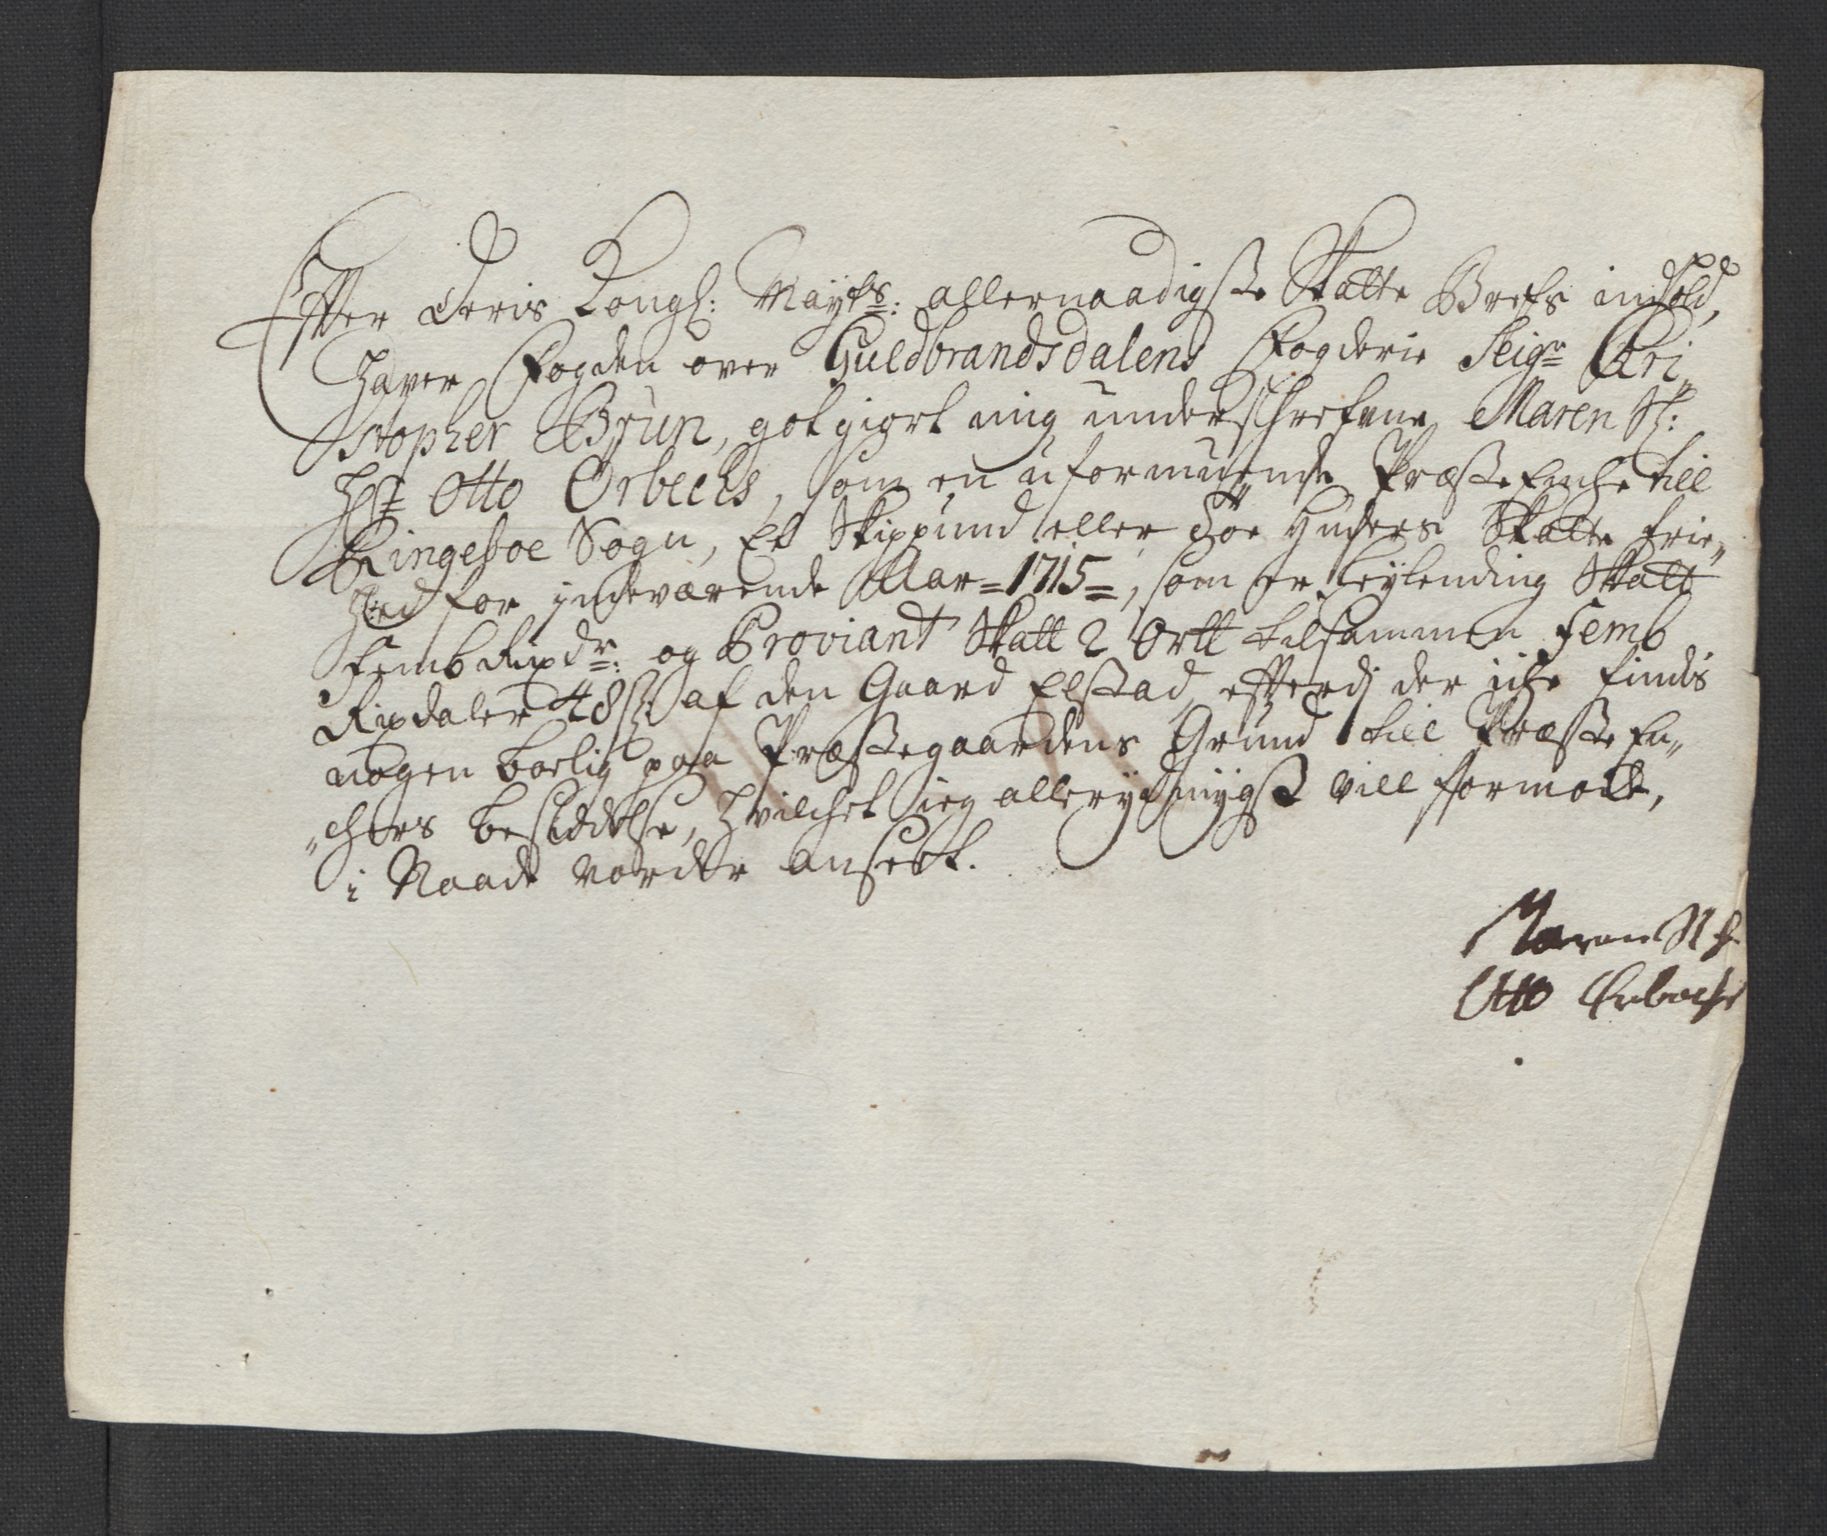 Effter Deris Kongl: Mayts: allernaadigste Skatte Brefs indhold,
hafver Fogden over Guldbrandsdalens Fogderie Seigr Chri„
stopher Brun, got giort mig underschrefvne Maren Sl:
Hr: Otto Orbechs, som en uformuende Præste Enche till
Ringeboe Sogn, Et Skippund eller Toe Huders Skatte frie„
hed for indeværende Aar =1715=, som er Leylending Skatt
Femb Rixdr: og Proviant Skatt 2 Ortt tilsammen Femb
Rixdaler 48 s: af den Gaard Elstad, efferdj der iche findis
nogen boelig paa Præstegaardens Grund till Præste En„
„chers besiddelse, hvilchet ieg allerydmygst vill formode,
i Naade vorder anseet.
Maren Sl hr
Otto Orbechs